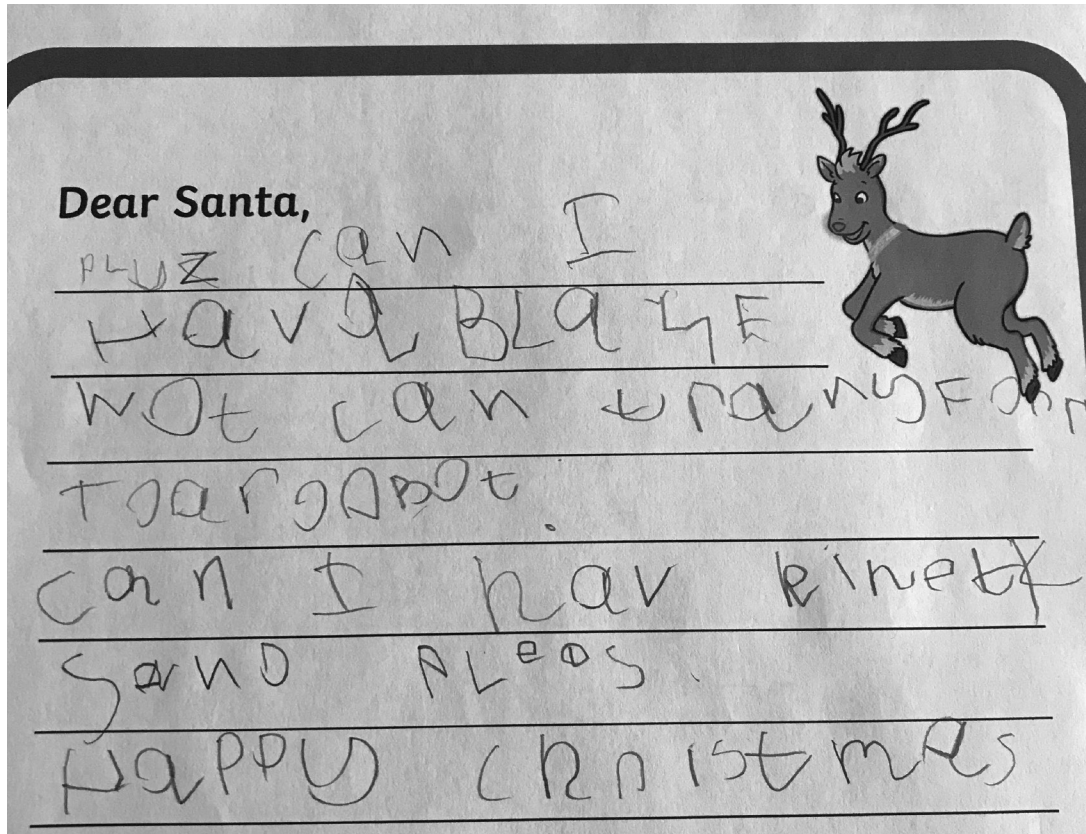 Dear Santa,
PLUZ can I
Hav a BLaYE
wot can transForm
can I hav kinetk
SanD PLeas.
Happy christmas